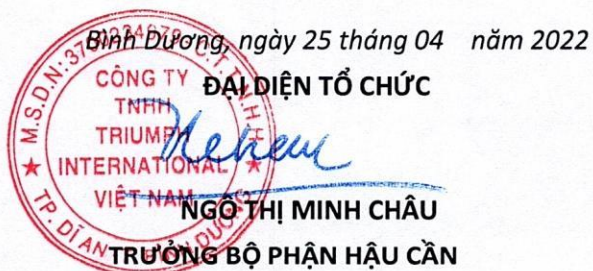 Bình Dương, ngày 25 tháng 04 năm 2022
ĐẠI DIỆN TỔ CHỨC
M.S.D.N: C.T.T.N.H.H
CÔNG TY
TNHH
TRIUMPH
INTERNATIONAL
VIỆT NAM
TP. DĨ AN
NGÔ THỊ MINH CHÂU
TRƯỞNG BỘ PHẬN HẬU CẦN